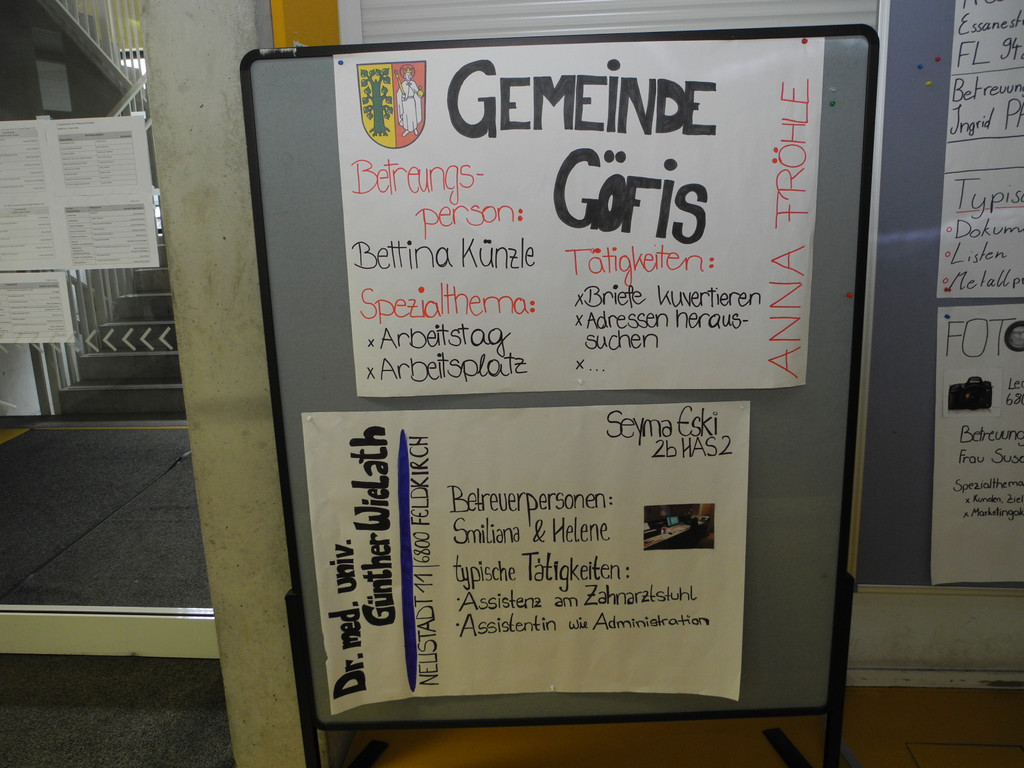 GEMEINDE
GÖFIS
ANNA FRÖHLE
Betreungs-
person:
Bettina Künzle
Spezialthema:
x Arbeitstag
x Arbeitsplatz
Tätigkeiten:
x Briefe kuvertieren
x Adressen heraus-
suchen
x ...
Seyma Eski
2b HAS 2
Dr. med. univ.
Günther WieLath
NEUSTADT 11 | 6800 FELDKIRCH
Betreuerpersonen:
Smiliana & Helene
typische Tätigkeiten:
· Assistenz am Zahnarztstuhl
· Assistentin wie Administration
Essanest
FL 94
Betreuun
Ingrid
Typis
Dokum
Listen
Metallp
FOT
Betreuung
Frau Sus
Spezialthema
x Kunden, Ziel
x Marketing